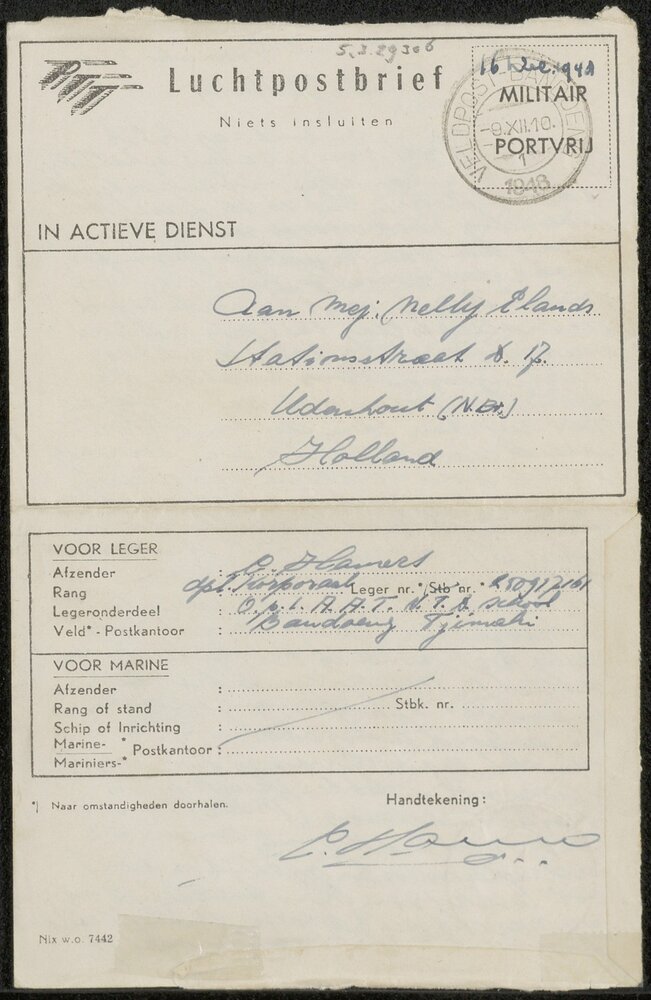 5.3.29306
PTT
Luchtpostbrief
Niets insluiten
16 Dec. 1948
MILITAIR
PORTVRIJ
VELDPOST
-9.XII.10.
1
1948
IN ACTIEVE DIENST
Aan Mej. Nelly Elands
Stationsstraat D. 17.
Udenhout (N.Br.)
Holland
VOOR LEGER
Afzender : C. Hamers
Rang dpl. Korporaal Leger nr.* Stb nr.*
Legeronderdeel : O.p.l. A.A.T. N.T.D. school
Veld* - Postkantoor : Bandoeng Tjimahi
VOOR MARINE
Afzender :
Rang of stand : Stbk. nr.
Schip of Inrichting :
Marine- * Postkantoor :
Mariniers-*
*) Naar omstandigheden doorhalen.
Handtekening:
C. Hamers
Nix w.o. 7442